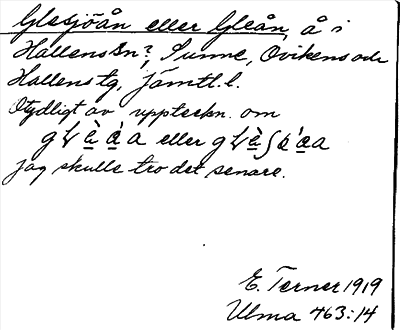 Glesjöån eller Gleån, å i
Hallens sn?, Sunne, Ovikens och
Hallens tg, Jämtl. l.
Otydligt av uppteckn. om
eller
jag skulle tro det senare.
E. Terner 1919
Ulma 463:14